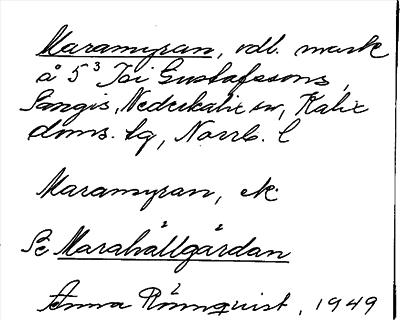 Maramyran, odl. mark
å 5³ Isi Gustafssons,
Sangis, Nederkalix sn, Kalix
doms. tg, Norrb. l
Maramyran, ek.
Se Marahållgårdan
Anna Rönnquist, 1949